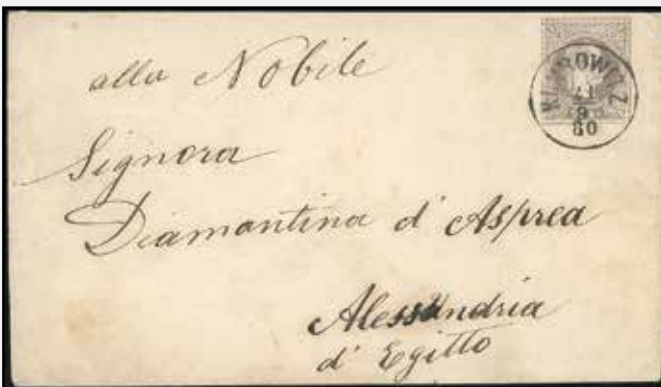 alla Nobile
Signora
Diamantina d'Asprea
Alessandria
d'Egitto
9
80